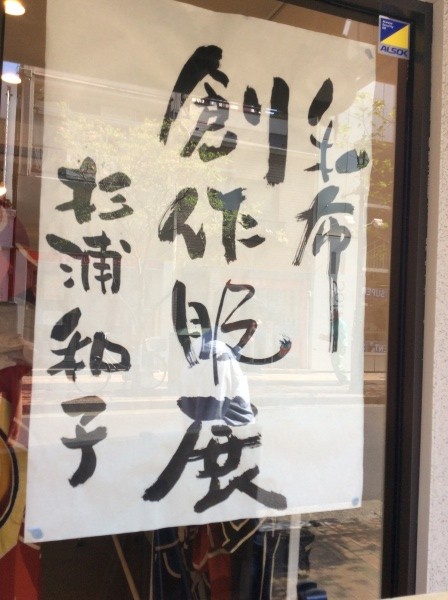 布
創作服展
杉浦和子
ALSOK